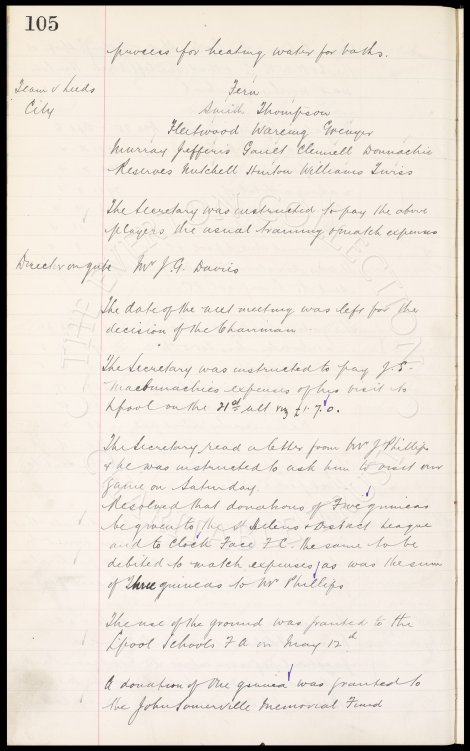 105
process for heating water for baths.
Team v Leeds
City
Fern
Smith Thompson
Fleetwood Wareing Grenyer
Murray Jefferis Gault Clennell Donnachie
Reserves Mitchell Hurton Williams Twiss
The Secretary was instructed to pay the above
players the usual training & match expenses
Director on gate Mr J. G. Davies
The date of the next meeting was left for the
decision of the Chairman
The Secretary was instructed to pay J. S.
Macconnachies expenses of his visit to
Lpool on the 21st ult viz £1.7.0.
The Secretary read a letter from Mr J Phillips
& he was instructed to ask him to visit our
game on Saturday.
Resolved that donations of Five guineas
be given to the St Helens & District League
and to Clock Face F.C. the same to be
debited to match expenses, as was the sum
of Three guineas to Mr Phillips
The use of the ground was granted to the
L'pool Schools F A on May 12th
A donation of One guinea was granted to
the John Somerville Memorial Fund
THE EVERTON COLLECTION